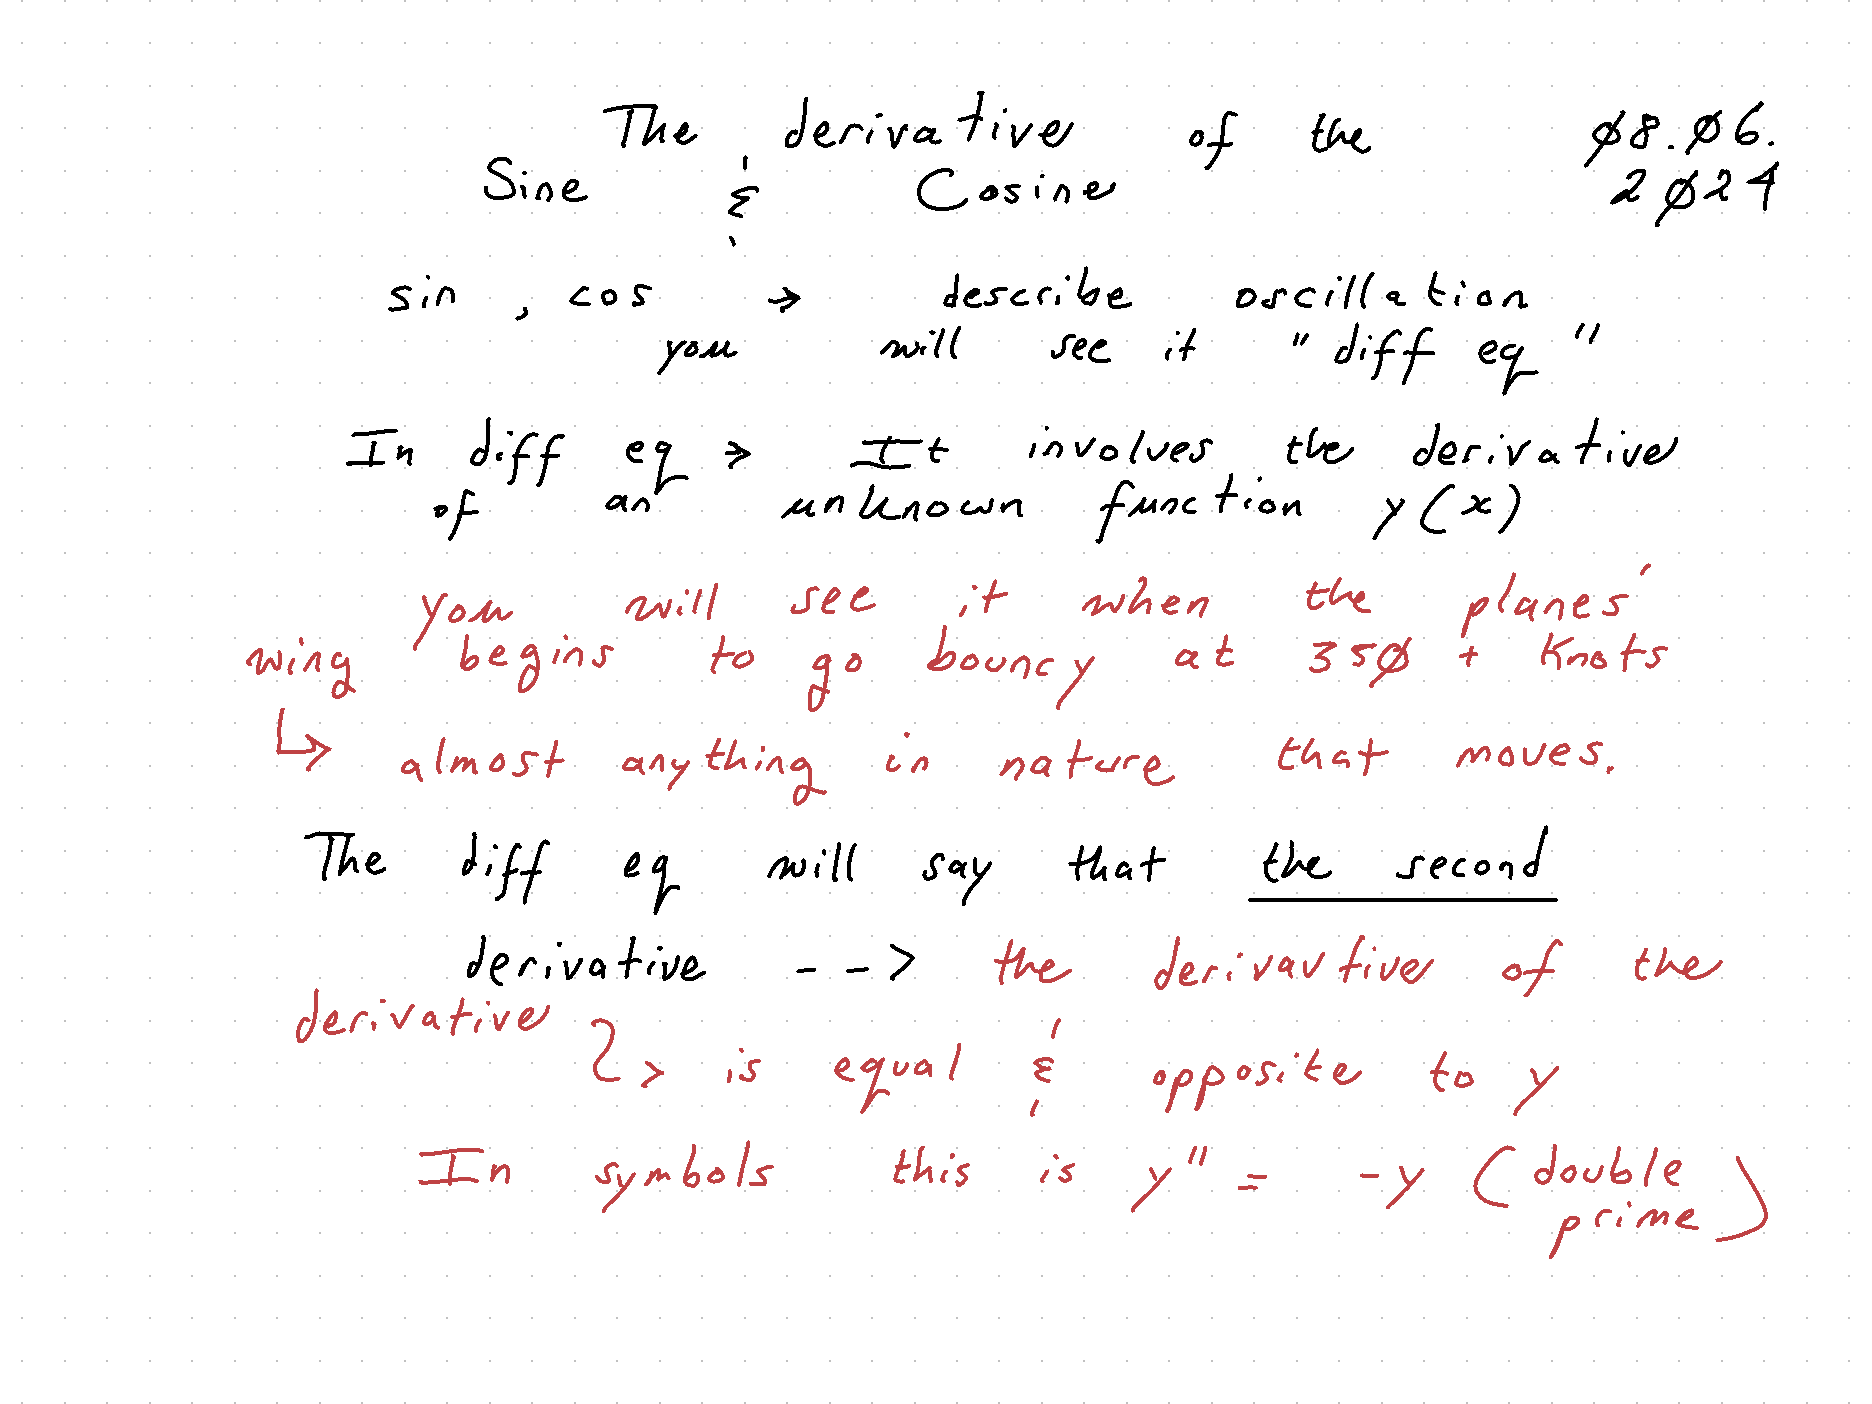 The derivative of the Ø8.Ø6.
Sine & Cosine 2Ø24
sin , cos → describe oscillation
you will see it "diff eq"
In diff eq → It involves the derivative
of an unknown function y(x)
you will see it when the planes'
wing begins to go bouncy at 35Ø + Knots
↳ almost anything in nature that moves.
The diff eq will say that the second
derivative --> the derivavtive of the
derivative
> is equal & opposite to y
In symbols this is y" = -y (double
prime)